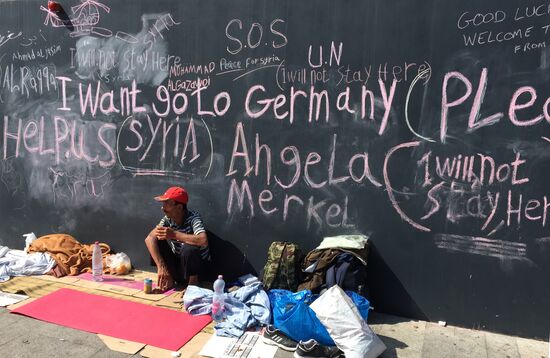 GOOD LUCK
WELCOME T
FROM
Ahmad al Jasim
Al Raqqa
I will not Stay Here
MOHAMMAD
ALGAZAWY
S.O.S
Peace for Syria
U.N
(I will not Stay Here)
I Want go to Germany (Plea
Help us (Syria) Angela (I will not
Merkel Stay Here